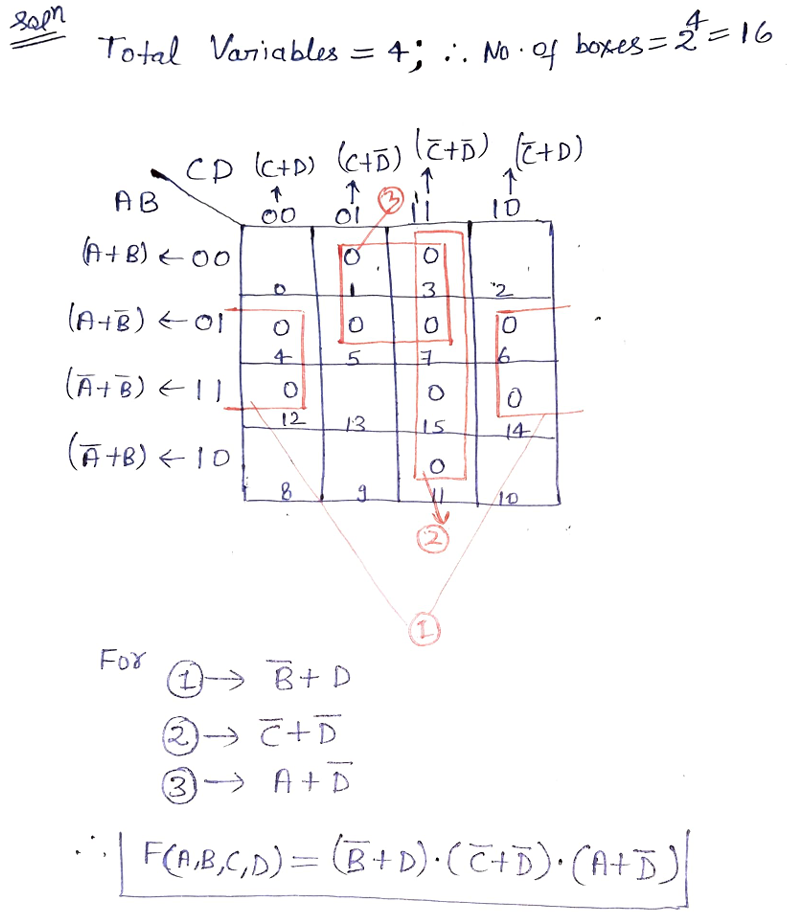 Soln
Total Variables = 4; ∴ No. of boxes = 2⁴ = 16
CD (C+D) (C+D̅) (C̅+D̅) (C̅+D)
AB 00 01 ③ 11 10
(A+B) ← 00 0 0
0 1 3 2
(A+B̅) ← 01 0 0 0 0
4 5 7 6
(A̅+B̅) ← 11 0 0 0
12 13 15 14
(A̅+B) ← 10 0
8 9 11 10
②
①
For ① → B̅+D
② → C̅+D̅
③ → A+D̅
∴ F(A,B,C,D) = (B̅+D)·(C̅+D̅)·(A+D̅)